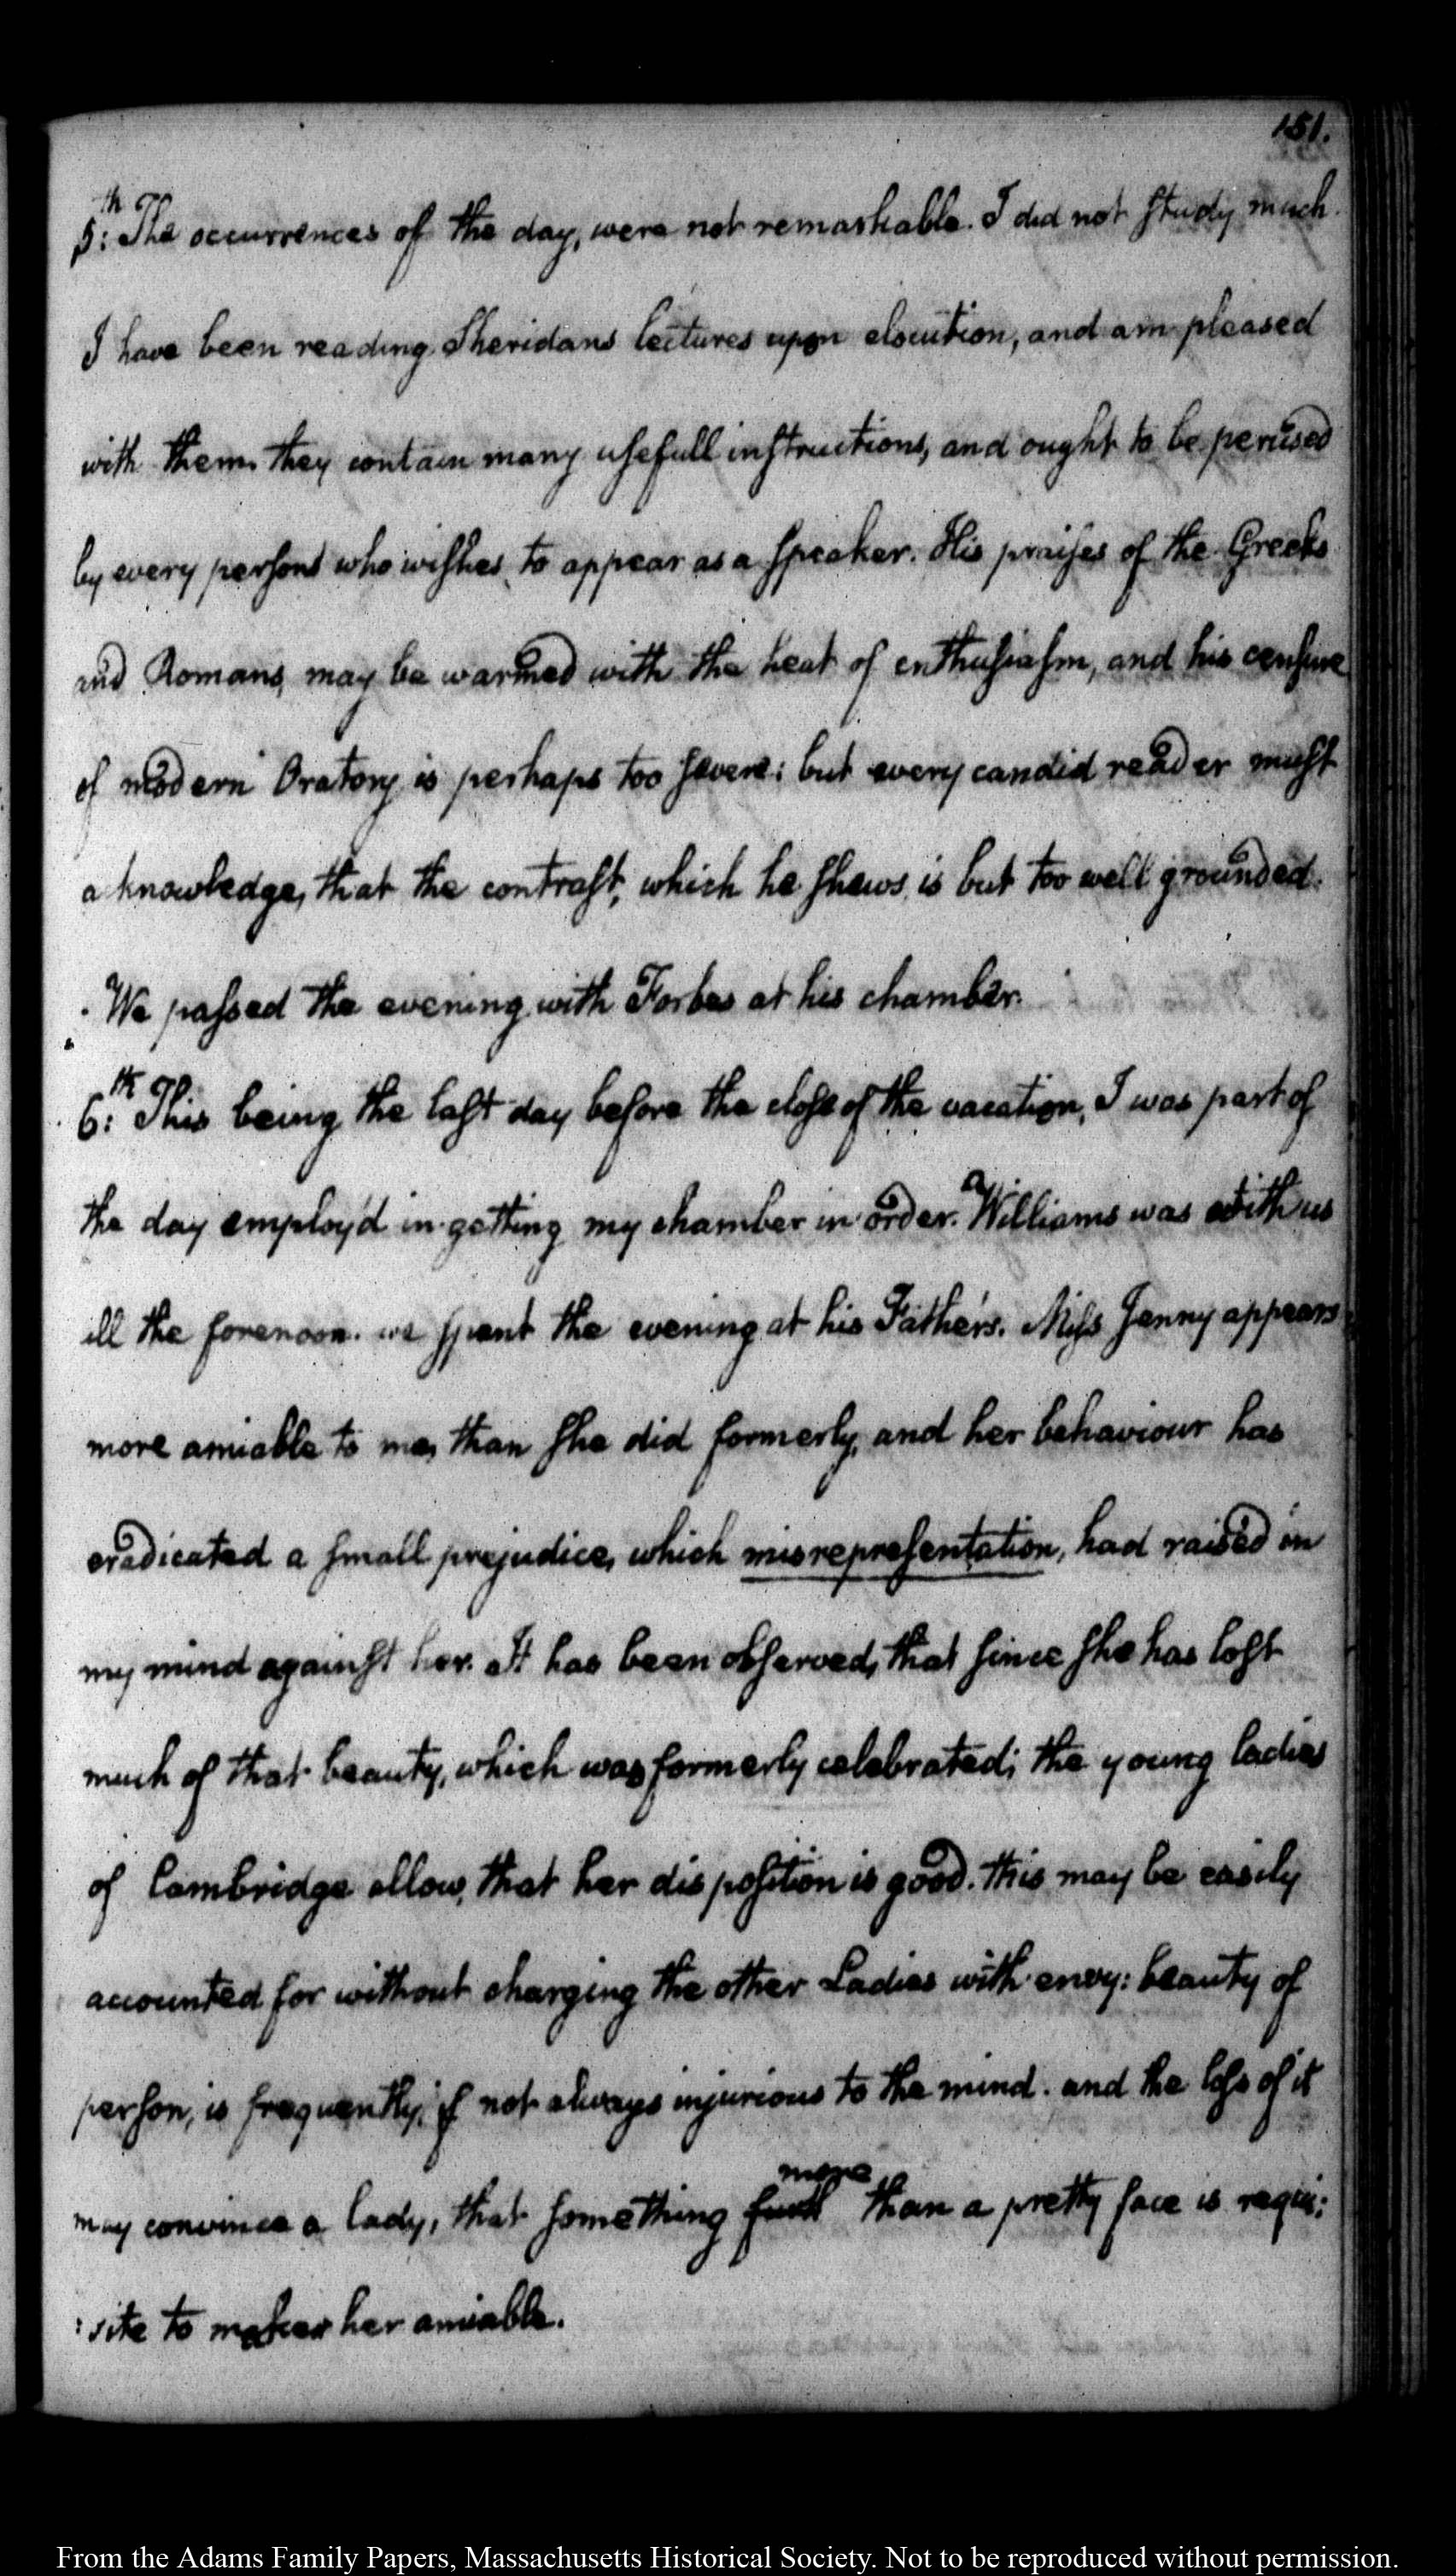 151.
5:th The occurrences of the day, were not remarkable. I did not study much.
I have been reading Sheridans lectures upon elocution, and am pleased
with them, they contain many usefull instructions, and ought to be perused
by every persons who wishes to appear as a speaker. His praises of the Greeks
and Romans, may be warmed with the heat of enthusiasm, and his censure
of modern Oratory is perhaps too severe; but every candid reader must
aknowledge, that the contrast, which he shews, is but too well grounded.
We passed the evening with Forbes at his chamber.
6:th This being the last day before the close of the vacation, I was part of
the day employ'd in getting my chamber in order. Williams was with us
all the forenoon. we spent the evening at his Father's. Miss Jenny appears
more amiable to me, than she did formerly, and her behaviour has
eradicated a small prejudice, which misrepresentation, had raised in
my mind against her. It has been observed, that since she has lost
much of that beauty, which was formerly celebrated; the young ladies
of Cambridge allow, that her disposition is good. this may be easily
accounted for without charging the other Ladies with envy: beauty of
person, is frequently, if not always injurious to the mind. and the loss of it
more
may convince a lady, that something than a pretty face is requi:
:site to makes her amiable.
From the Adams Family Papers, Massachusetts Historical Society. Not to be reproduced without permission.